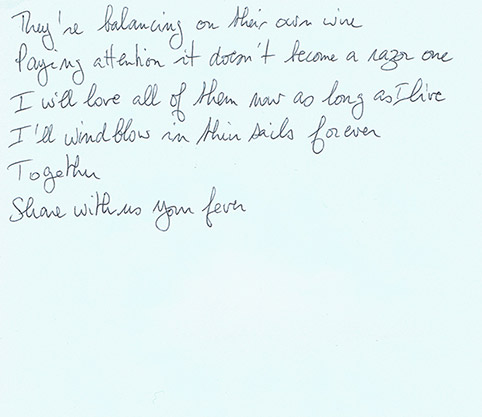 They're balancing on their own wire
Paying attention it doesn't become a razor one
I will love all of them now as long as I live
I'll wind blow in their sails forever
Together
Share with us your fever